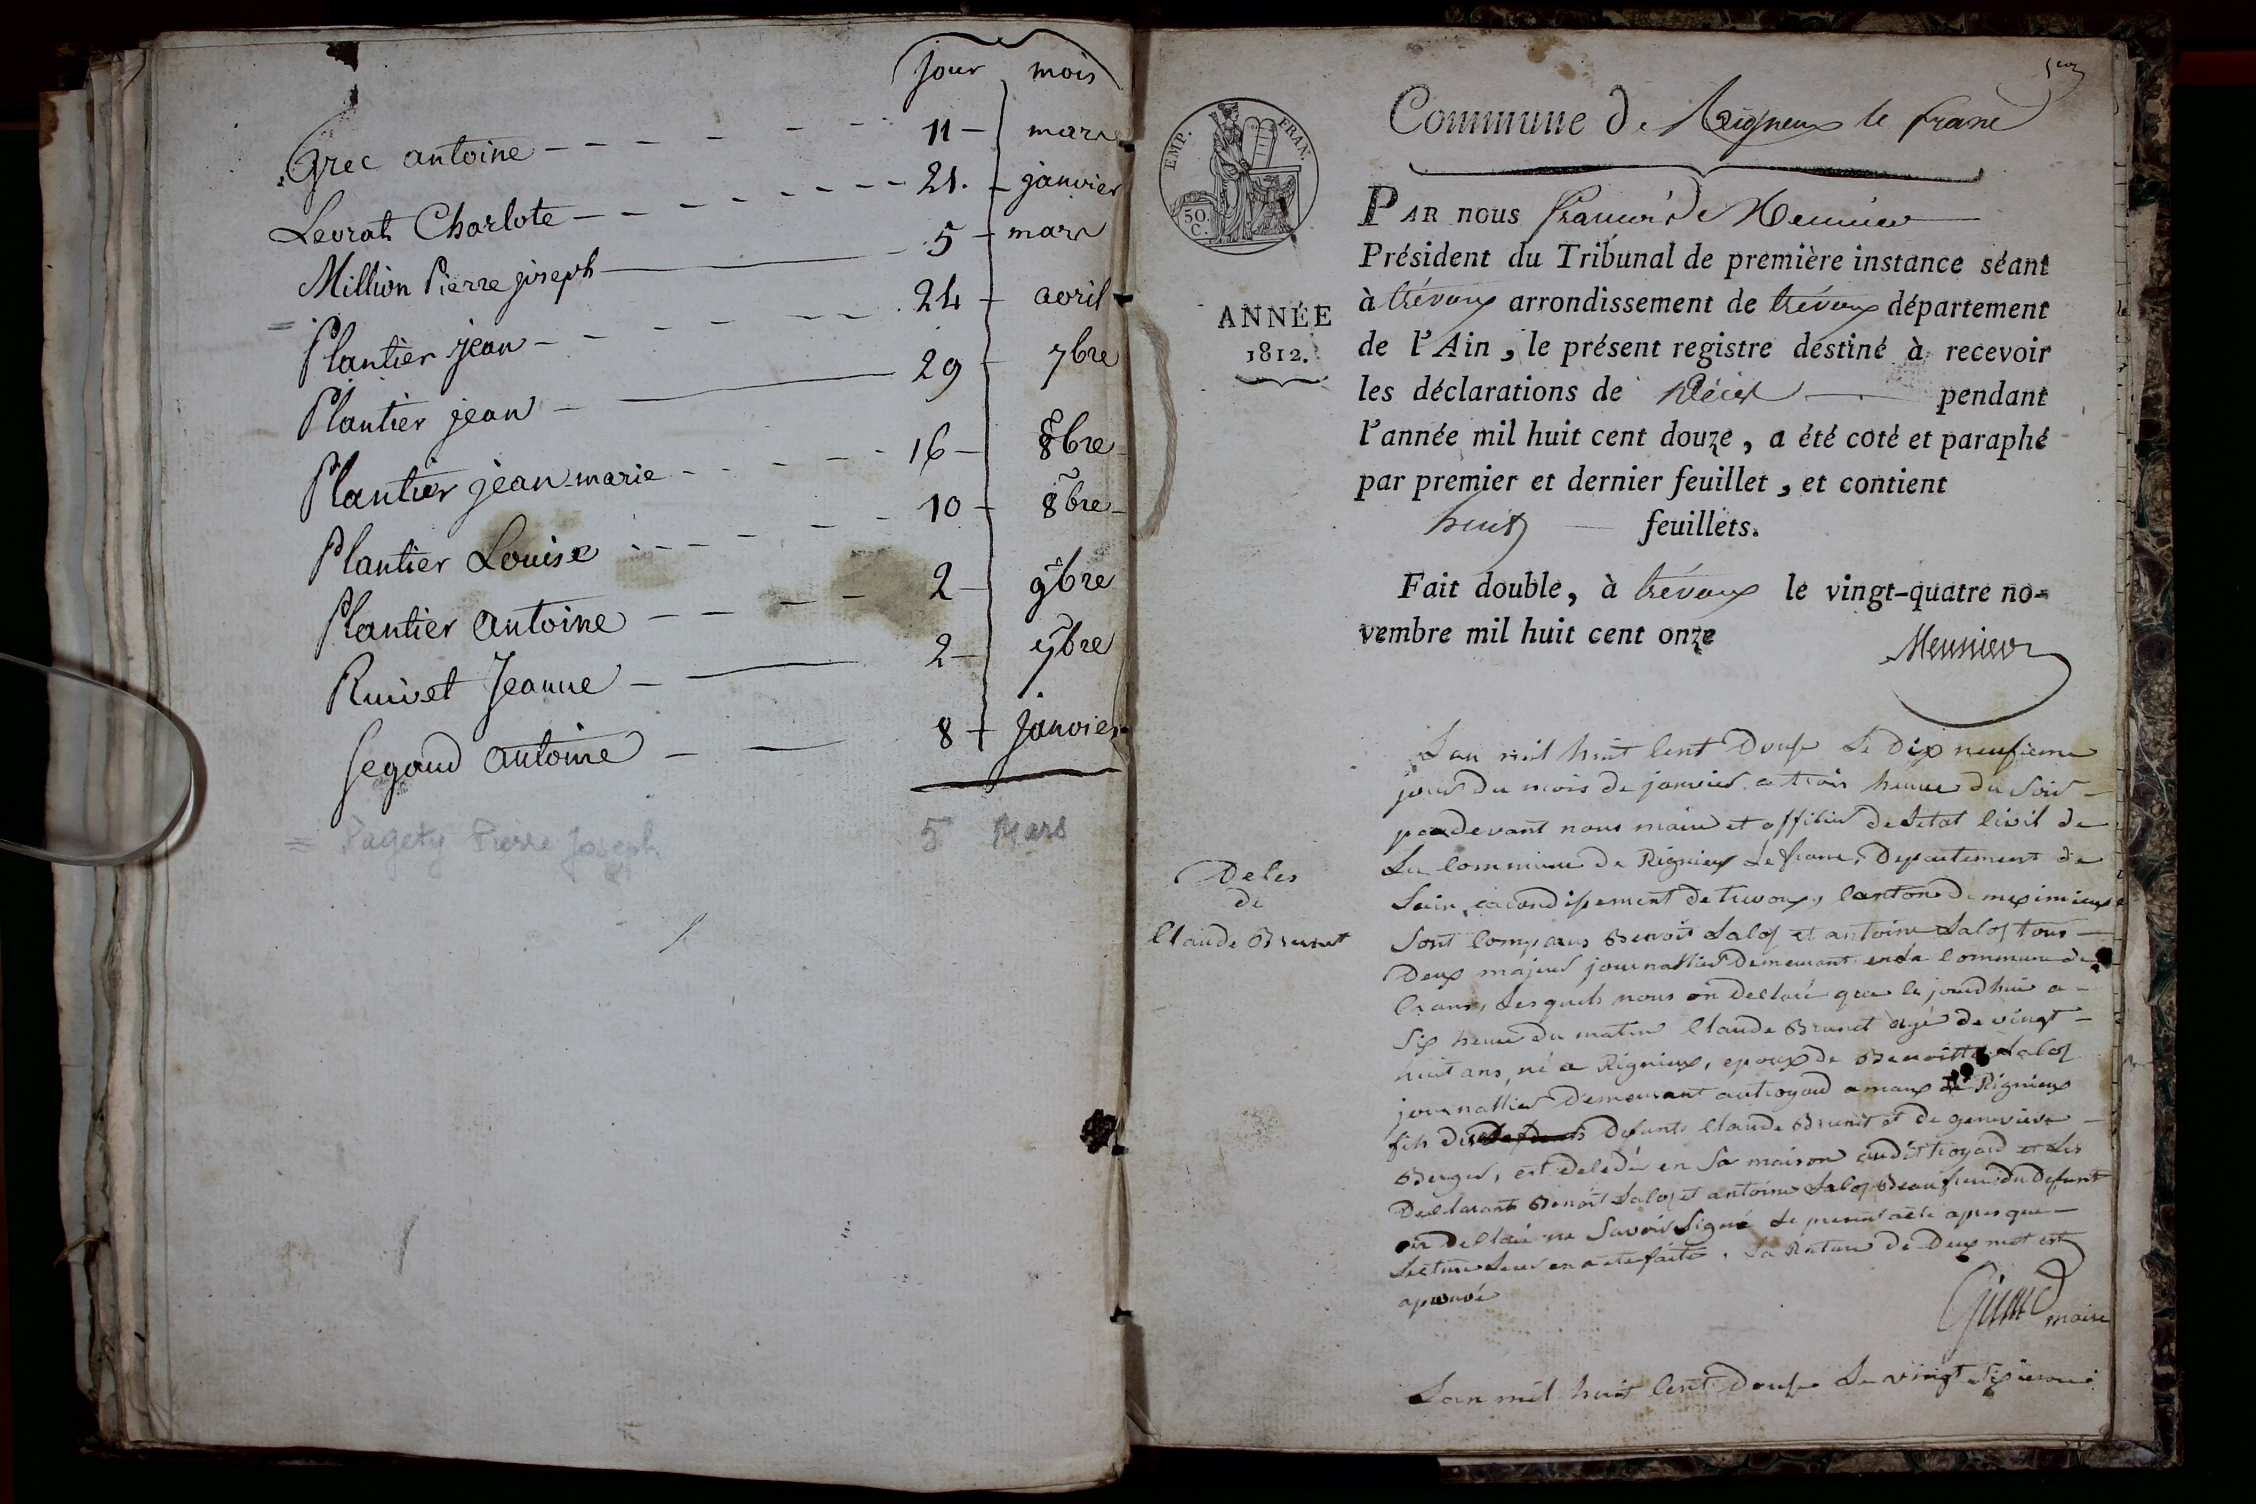 jour mois
Grec antoine 11 mars
Levrat Charlote 21. janvier
Million Pierre joseph 5 mars
Plantier jean 24 avril
Plantier jean 29 7bre
Plantier jean-marie 16 8bre
Plantier Louise 10 8bre
Plantier antoine 2 9bre
Ruivet Jeanne 2 7bre
Segaud antoine 8 janvier
= Pagety Pierre Joseph 5 Mars
Commune de Rigneux le franc
EMP. FRAN.
50. C.
ANNÉE
1812.
PAR nous françois de Meunier
Président du Tribunal de première instance séant
à trévoux arrondissement de trévoux département
de l'Ain, le présent registre destiné à recevoir
les déclarations de Décès pendant
l'année mil huit cent douze, a été coté et paraphé
par premier et dernier feuillet, et contient
huit feuillets.
Fait double, à trévoux le vingt-quatre no-
vembre mil huit cent onze
Meunier
Deces
de
Claude Brunet
Lan mil huit Cent Douse Le Dix neufieme
jour Du mois de janvier a trois heure du Soir
pardevant nous maire et officier De Letat Civil de
La Commune De Rignieux Le franc, Departement de
Lain, arondissement De trevoux, Canton De meximieux
Sont Comparus Benoit Lalos et antoine Lalos tous
Deux majeur journallier Demeurant en La Commune de
Crans, Lesquels nous on Declaré que Ce jourdhui a
Six heure du matin Claude Brunet agé de vingt
huit ans, né a Rignieux, epoux de Benoitte Lalos
journallier Demeurant au troyard amaux de Rignieux
fils de Defunts Claude Brunet et de genevieve
Berger, est Decedé en Sa maison audit troyard et Les
Declarants Benoit Lalos et antoine Lalos Beaufrere Du Defunt
on Declaré ne Savoir Signé Le present acte apres que
Lecture Leur en a ete faite. La Rature de Deux mot est
aprouvé
maire
Lan mil huit Cent Douse Le vingt Sixieme